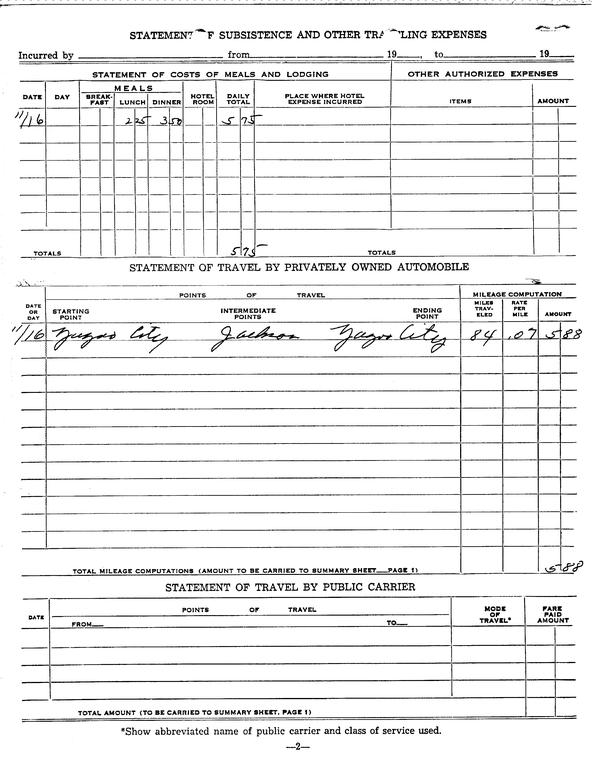 STATEMENT F SUBSISTENCE AND OTHER TRA LING EXPENSES
Incurred by from 19 , to 19
STATEMENT OF COSTS OF MEALS AND LODGING OTHER AUTHORIZED EXPENSES
DATE DAY MEALS BREAK-FAST LUNCH DINNER HOTEL ROOM DAILY TOTAL PLACE WHERE HOTEL EXPENSE INCURRED ITEMS AMOUNT
11/16 2 25 3 50 5 75
TOTALS 5 75 TOTALS
STATEMENT OF TRAVEL BY PRIVATELY OWNED AUTOMOBILE
DATE OR DAY POINTS OF TRAVEL MILEAGE COMPUTATION
STARTING POINT INTERMEDIATE POINTS ENDING POINT MILES TRAV-ELED RATE PER MILE AMOUNT
11/16 Yazoo City Jackson Yazoo City 84 .07 5 88
TOTAL MILEAGE COMPUTATIONS (AMOUNT TO BE CARRIED TO SUMMARY SHEET—PAGE 1) 5 88
STATEMENT OF TRAVEL BY PUBLIC CARRIER
DATE POINTS OF TRAVEL MODE OF TRAVEL* FARE PAID AMOUNT
FROM— TO—
TOTAL AMOUNT (TO BE CARRIED TO SUMMARY SHEET, PAGE 1)
*Show abbreviated name of public carrier and class of service used.
—2—